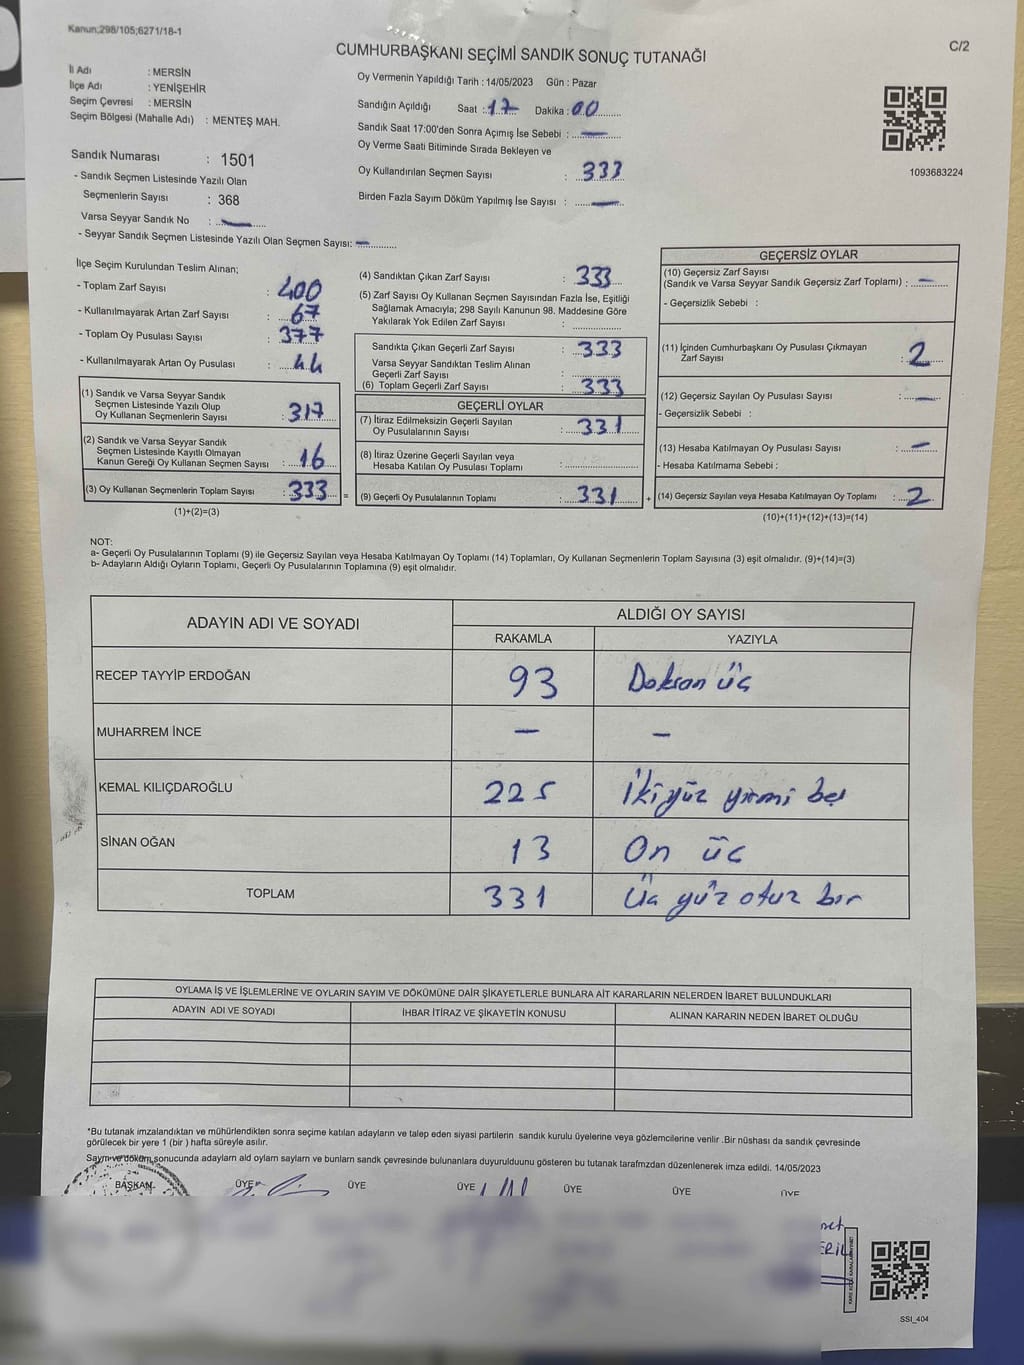 Kanun;298/105;6271/18-1
C/2
CUMHURBAŞKANI SEÇİMİ SANDIK SONUÇ TUTANAĞI
İl Adı : MERSİN
İlçe Adı : YENİŞEHİR
Seçim Çevresi : MERSİN
Seçim Bölgesi (Mahalle Adı) : MENTEŞ MAH.
Sandık Numarası : 1501
- Sandık Seçmen Listesinde Yazılı Olan
Seçmenlerin Sayısı : 368
Varsa Seyyar Sandık No : —
- Seyyar Sandık Seçmen Listesinde Yazılı Olan Seçmen Sayısı: —
Oy Vermenin Yapıldığı Tarih : 14/05/2023 Gün : Pazar
Sandığın Açıldığı Saat : 17 Dakika : 00
Sandık Saat 17:00'den Sonra Açımış İse Sebebi : —
Oy Verme Saati Bitiminde Sırada Bekleyen ve
Oy Kullandırılan Seçmen Sayısı : 333
Birden Fazla Sayım Döküm Yapılmış İse Sayısı : —
1093683224
İlçe Seçim Kurulundan Teslim Alınan;
- Toplam Zarf Sayısı : 400
- Kullanılmayarak Artan Zarf Sayısı : 67
- Toplam Oy Pusulası Sayısı : 377
- Kullanılmayarak Artan Oy Pusulası : 44
(1) Sandık ve Varsa Seyyar Sandık
Seçmen Listesinde Yazılı Olup
Oy Kullanan Seçmenlerin Sayısı : 317
(2) Sandık ve Varsa Seyyar Sandık
Seçmen Listesinde Kayıtlı Olmayan
Kanun Gereği Oy Kullanan Seçmen Sayısı : 16
(3) Oy Kullanan Seçmenlerin Toplam Sayısı : 333 =
(1)+(2)=(3)
(4) Sandıktan Çıkan Zarf Sayısı : 333
(5) Zarf Sayısı Oy Kullanan Seçmen Sayısından Fazla İse, Eşitliği
Sağlamak Amacıyla; 298 Sayılı Kanunun 98. Maddesine Göre
Yakılarak Yok Edilen Zarf Sayısı :
Sandıkta Çıkan Geçerli Zarf Sayısı : 333
Varsa Seyyar Sandıktan Teslim Alınan
Geçerli Zarf Sayısı :
(6) Toplam Geçerli Zarf Sayısı : 333
GEÇERLİ OYLAR
(7) İtiraz Edilmeksizin Geçerli Sayılan
Oy Pusulalarının Sayısı : 331
(8) İtiraz Üzerine Geçerli Sayılan veya
Hesaba Katılan Oy Pusulası Toplamı :
(9) Geçerli Oy Pusulalarının Toplamı : 331 +
GEÇERSİZ OYLAR
(10) Geçersiz Zarf Sayısı
(Sandık ve Varsa Seyyar Sandık Geçersiz Zarf Toplamı) : —
- Geçersizlik Sebebi :
(11) İçinden Cumhurbaşkanı Oy Pusulası Çıkmayan
Zarf Sayısı : 2
(12) Geçersiz Sayılan Oy Pusulası Sayısı : —
- Geçersizlik Sebebi :
(13) Hesaba Katılmayan Oy Pusulası Sayısı : —
- Hesaba Katılmama Sebebi :
(14) Geçersiz Sayılan veya Hesaba Katılmayan Oy Toplamı : 2
(10)+(11)+(12)+(13)=(14)
NOT:
a- Geçerli Oy Pusulalarının Toplamı (9) ile Geçersiz Sayılan veya Hesaba Katılmayan Oy Toplamı (14) Toplamları, Oy Kullanan Seçmenlerin Toplam Sayısına (3) eşit olmalıdır. (9)+(14)=(3)
b- Adayların Aldığı Oyların Toplamı, Geçerli Oy Pusulalarının Toplamına (9) eşit olmalıdır.
ADAYIN ADI VE SOYADI ALDIĞI OY SAYISI
RAKAMLA YAZIYLA
RECEP TAYYİP ERDOĞAN 93 Doksan üç
MUHARREM İNCE — —
KEMAL KILIÇDAROĞLU 225 İkiyüz yirmi beş
SİNAN OĞAN 13 On üç
TOPLAM 331 Üç yüz otuz bir
OYLAMA İŞ VE İŞLEMLERİNE VE OYLARIN SAYIM VE DÖKÜMÜNE DAİR ŞİKAYETLERLE BUNLARA AİT KARARLARIN NELERDEN İBARET BULUNDUKLARI
ADAYIN ADI VE SOYADI İHBAR İTİRAZ VE ŞİKAYETİN KONUSU ALINAN KARARIN NEDEN İBARET OLDUĞU
*Bu tutanak imzalandıktan ve mühürlendikten sonra seçime katılan adayların ve talep eden siyasi partilerin sandık kurulu üyelerine veya gözlemcilerine verilir .Bir nüshası da sandık çevresinde
görülecek bir yere 1 (bir ) hafta süreyle asılır.
Sayım ve döküm sonucunda adayların ald oylam sayların ve bunların sandık çevresinde bulunanlara duyurulduunu gösteren bu tutanak tarafmzdan düzenlenerek imza edildi. 14/05/2023
BAŞKAN ÜYE ÜYE ÜYE ÜYE ÜYE ÜYE
SSI_404